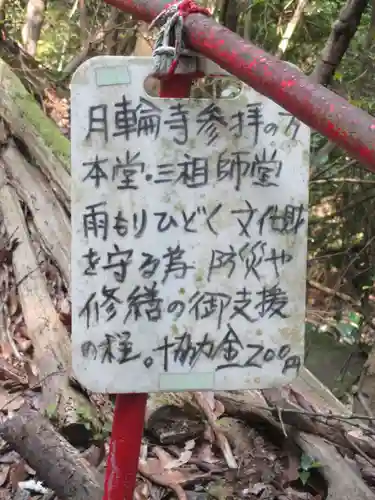 月輪寺参拝の方
本堂・三祖師堂
雨もりひどく文化財
を守る為 防災や
修繕の御支援
の程。協力金200円